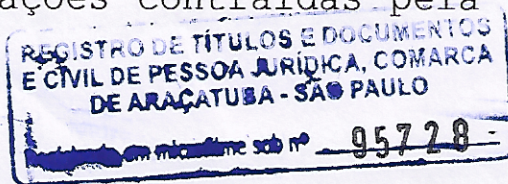 ações contraídas pela
REGISTRO DE TÍTULOS E DOCUMENTOS
E CIVIL DE PESSOA JURÍDICA, COMARCA
DE ARAÇATUBA - SÃO PAULO
em microfilme sob nº 95728-